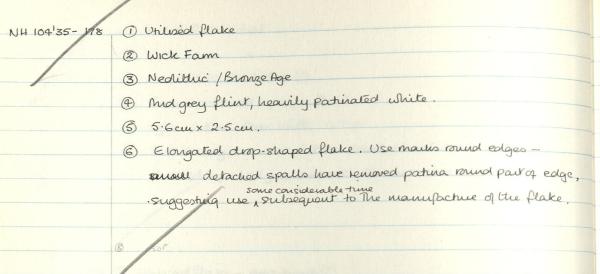 NH 104'35-178 ① Utilised flake
② Wick Farm
③ Neolithic / Bronze Age
④ Mid grey flint, heavily patinated white.
⑤ 5.6cm x 2.5cm.
⑥ Elongated drop-shaped flake. Use marks round edges -
small detached spalls have removed patina round part of edge,
some considerable time
suggesting use ^ subsequent to the manufacture of the flake.